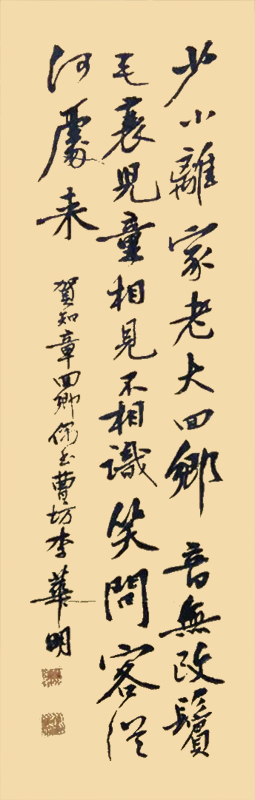 少小離家老大回鄉音無改鬢
毛衰兒童相見不相識笑問客從
何處来
賀知章回鄉偶书曹坊李華明